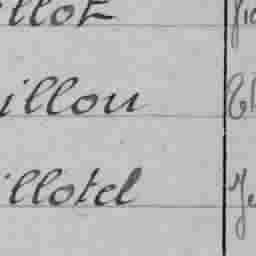 illot
illou
illotel